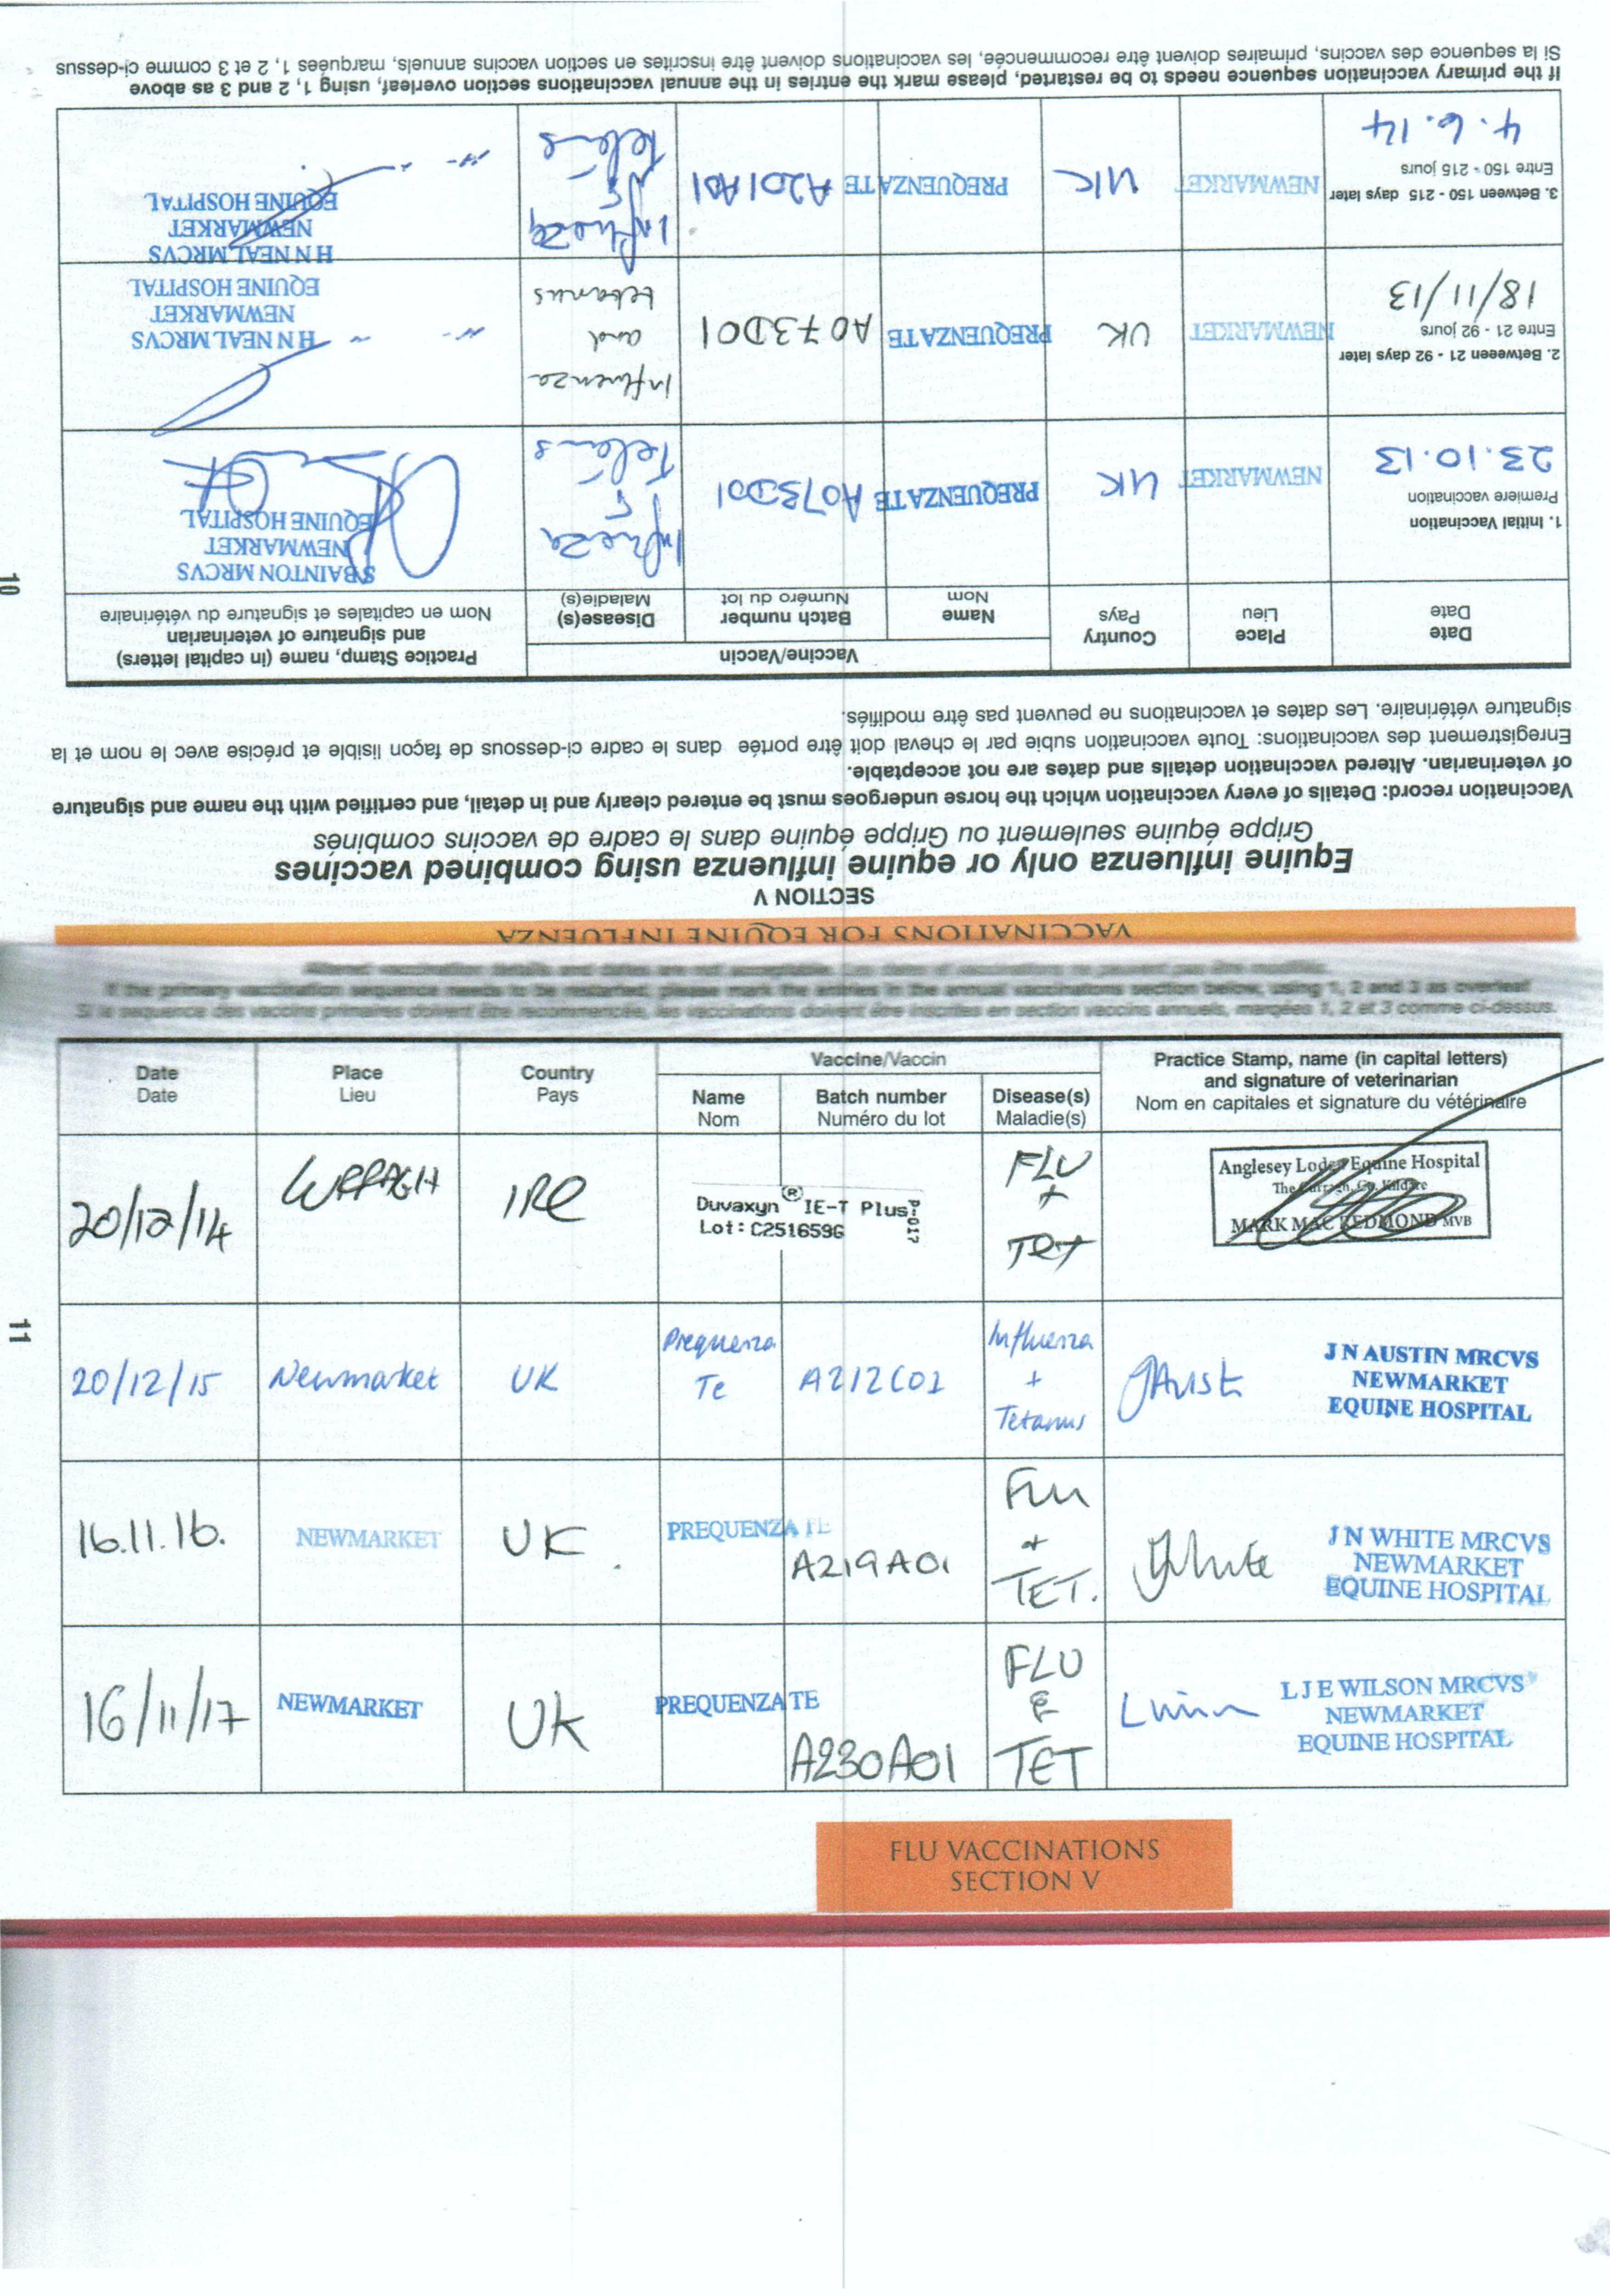 10
VACCINATIONS FOR EQUINE INFLUENZA
SECTION V
Equine influenza only or equine influenza using combined vaccines
Grippe équine seulement ou Grippe équine dans le cadre de vaccins combinés
Vaccination record: Details of every vaccination which the horse undergoes must be entered clearly and in detail, and certified with the name and signature
of veterinarian. Altered vaccination details and dates are not acceptable.
Enregistrement des vaccinations: Toute vaccination subie par le cheval doit être portée dans le cadre ci-dessous de façon lisible et précise avec le nom et la
signature vétérinaire. Les dates et vaccinations ne peuvent pas être modifiés.
Date
Date
Place
Lieu
Country
Pays
Vaccine/Vaccin
Name
Nom
Batch number
Numéro du lot
Disease(s)
Maladie(s)
Practice Stamp, name (in capital letters)
and signature of veterinarian
Nom en capitales et signature du vétérinaire
1. Initial Vaccination
Premiere vaccination
23.10.13
NEWMARKET
UK
PREQUENZA TE
A073D01
S BAINTON MRCVS
NEWMARKET
EQUINE HOSPITAL
2. Betweeen 21 - 92 days later
Entre 21 - 92 jours
18/11/13
NEWMARKET
UK
PREQUENZA TE
A073D01
Influenza
and
tetanus
H N NEAL MRCVS
NEWMARKET
EQUINE HOSPITAL
3. Between 150 - 215 days later
Entre 150 - 215 jours
4.6.14
NEWMARKET
UK
PREQUENZA TE
A201A01
H N NEAL MRCVS
NEWMARKET
EQUINE HOSPITAL
If the primary vaccination sequence needs to be restarted, please mark the entries in the annual vaccinations section overleaf, using 1, 2 and 3 as above
Si la sequence des vaccins, primaires doivent être recommencée, les vaccinations doivent être inscrites en section vaccins annuels, marquées 1, 2 et 3 comme ci-dessus
11
Altered vaccination details and dates are not acceptable. Les dates et vaccinations ne peuvent pas être modifiés.
If the primary vaccination sequence needs to be restarted, please mark the entries in the annual vaccinations section below, using 1, 2 and 3 as overleaf
Si la sequence des vaccins primaires doivent être recommencée, les vaccinations doivent être inscrites en section vaccins annuels, margées 1, 2 et 3 comme ci-dessus.
Date
Date
Place
Lieu
Country
Pays
Vaccine/Vaccin
Name
Nom
Batch number
Numéro du lot
Disease(s)
Maladie(s)
Practice Stamp, name (in capital letters)
and signature of veterinarian
Nom en capitales et signature du vétérinaire
20/12/14
CURRAGH
IRE
Duvaxyn® IE-T Plus
Lot: C251659G
P-017
FLU
+
TET
Anglesey Lodge Equine Hospital
The Curragh, Co. Kildare
MARK MAC REDMOND MVB
20/12/15
Newmarket
UK
Prequenza
Te
A212C02
Influenza
+
Tetanus
J N AUSTIN MRCVS
NEWMARKET
EQUINE HOSPITAL
16.11.16.
NEWMARKET
UK.
PREQUENZA TE
A219A01
Flu
+
TET.
JWhite
J N WHITE MRCVS
NEWMARKET
EQUINE HOSPITAL
16/11/17
NEWMARKET
UK
PREQUENZA TE
A230A01
FLU
&
TET
L J E WILSON MRCVS
NEWMARKET
EQUINE HOSPITAL
FLU VACCINATIONS
SECTION V